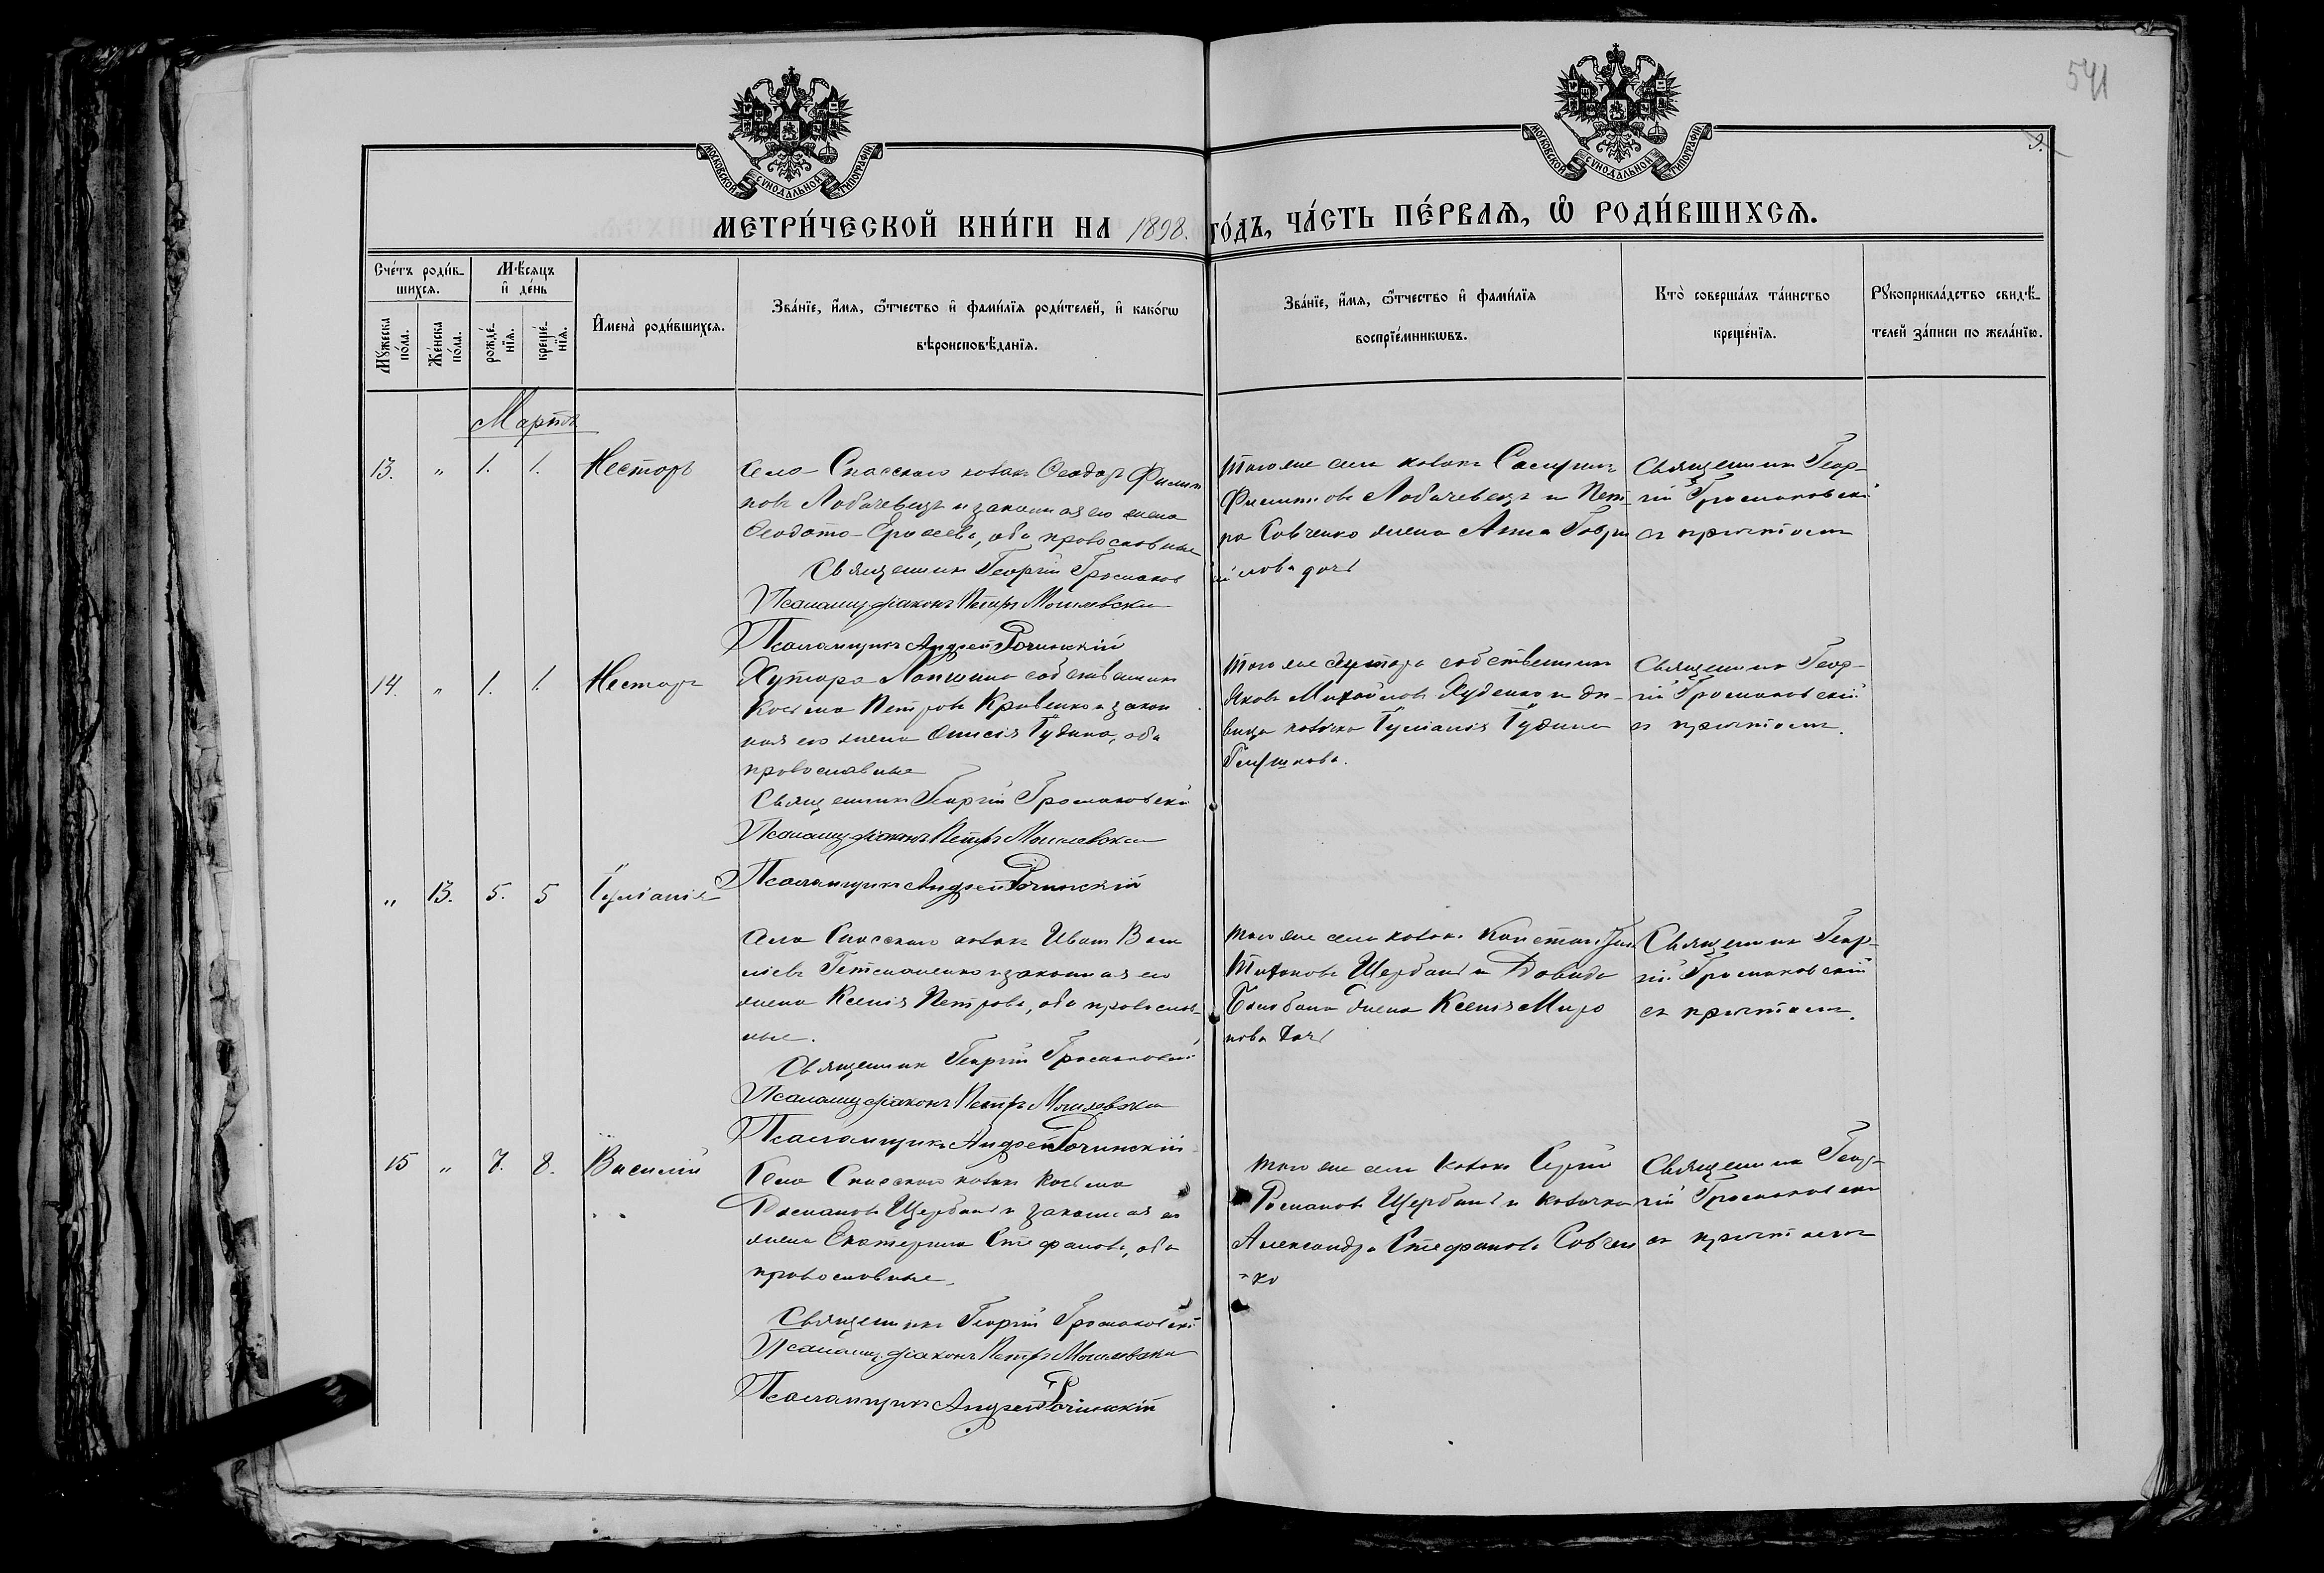 541
9.
МОСКОВСКОЙ СѴНОДАЛЬНОЙ ТИПОГРАФІИ
МОСКОВСКОЙ СѴНОДАЛЬНОЙ ТИПОГРАФІИ
МЕТРИ́ЧЕСКОЙ КНИ́ГИ НА 1898. ГО́ДЪ, ЧА́СТЬ ПЕ́РВАѦ, Ѡ҆ РОДИ́ВШИХСѦ.
Сче́тъ роди́в-
шихсѧ.
Мѣ́сѧцъ
и҆ де́нь
Мꙋ́жеска
по́ла.
Же́нска
по́ла.
рожде́-
нїѧ.
креще́-
нїѧ.
И҆мена̀ роди́вшихсѧ.
Зва́нїе, и҆́мѧ, ѻ҆́тчество и҆ фами́лїѧ роди́телей, и҆ како́гѡ
вѣроисповѣ́данїѧ.
Зва́нїе, и҆́мѧ, ѻ҆́тчество и҆ фами́лїѧ
воспрїе́мникѡвъ.
Кто̀ соверша́лъ та́инство
креще́нїѧ.
Рꙋкоприкла́дство свидѣ́-
телей за́писи по жела́нїю.
Мартъ
13. " 1. 1. Несторъ
Села Спасскаго козакъ Ѳеодоръ Филип
повъ Лобачевецъ и законная его жена
Ѳеодота Ерофеева, оба православные
Священникъ Георгій Громаков
Псаломщ. діаконъ Петръ Могилевскій
Псаломщикъ Андрей Рочинскій
Того же села козакъ
Филипповъ Лобачевецъ и Пет-
ра Савченко жена Анна Гаври
илова дочь
Священникъ Геор-
гій Громаковскій
съ причтомъ
14. " 1. 1. Несторъ
Хутора Лапшина собственникъ
Косьма Петровъ Кравченко и закон
ная его жена Анисія Гудина, оба
православные
Священникъ Георгій Громаковскій
Псаломщ. діаконъ Петръ Могилевскій
Псаломщикъ Андрей Рочинскій
Того же хутора собственникъ
Яковъ Михайловъ Руденко и дѣ-
вица козачка Іуліанія Гудина
Священникъ Геор-
гій Громаковскій
съ причтомъ.
" 13. 5. 5 Іуліанія
Села Спасскаго козакъ Иванъ Васи
ліевъ Гетманенко и законная его
жена Ксенія Петрова, оба православ-
ные.
Священникъ Георгій Громаковскій
Псаломщ. діаконъ Петръ Могилевскій
Псаломщикъ Андрей Рочинскій
Того же села козакъ Константинъ
Тихоновъ Щербань и Давида
Балабана жена Ксенія Миро
нова дочь
Священникъ Геор-
гій Громаковскій
съ причтомъ.
15 " 7. 8. Василій
Села Спасскаго козакъ Косьма
Романовъ Щербань и законная его
жена Екатерина Стефанова, оба
православные.
Священникъ Георгій Громаковскій
Псаломщ. діаконъ Петръ Могилевскій
Псаломщикъ Андрей Рочинскій
Того же села козакъ Сергій
Романовъ Щербань и козачка
Александра Стефанова Савчен
-ко
Священникъ Геор-
гій Громаковскій
съ причтомъ